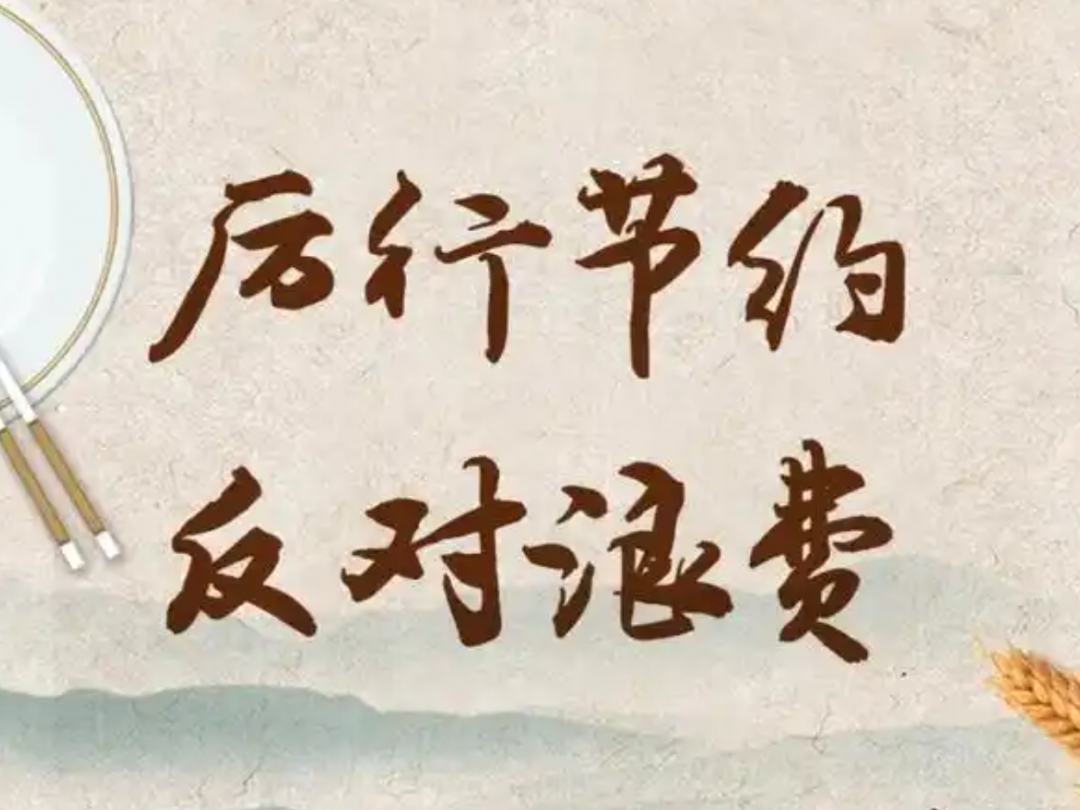 厉行节约
反对浪费